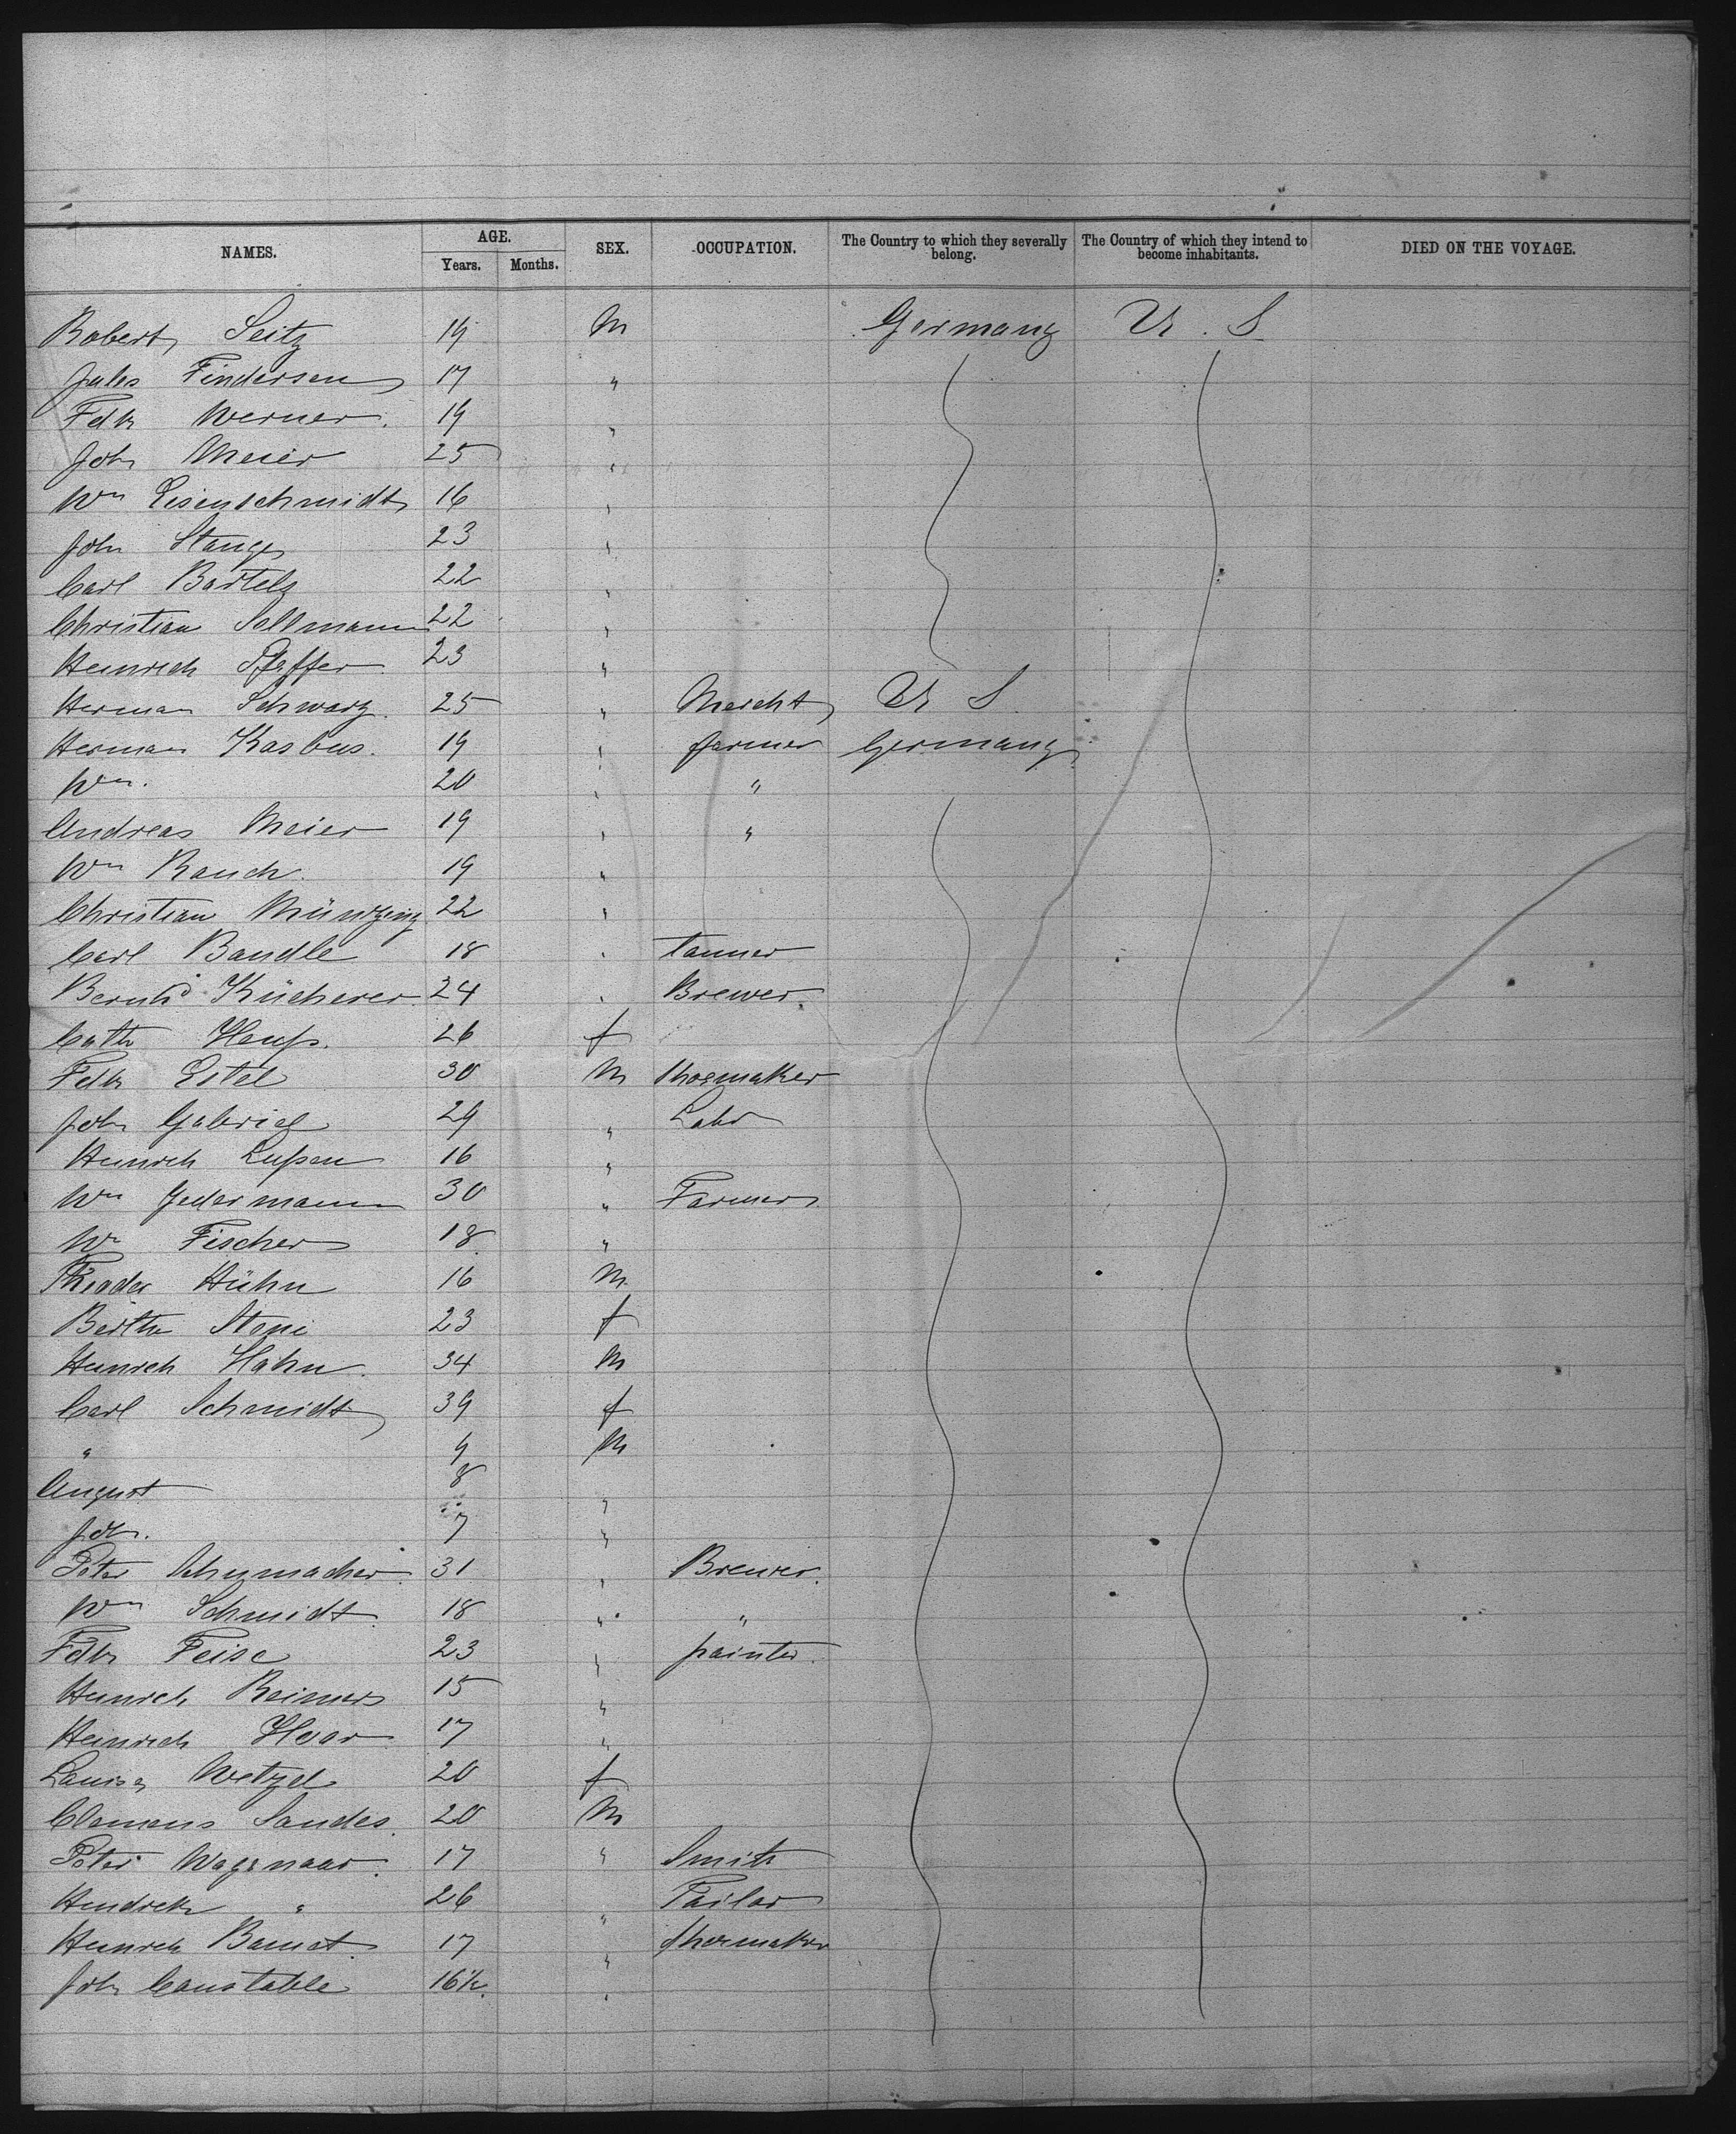 NAMES. AGE. SEX. OCCUPATION. The Country to which they severally belong. The Country of which they intend to become inhabitants. DIED ON THE VOYAGE.
Years. Months.
Robert Seitz 19 M Germany U. S.
Jules Findersen 17 "
Fdk Werner. 19 "
Joh Meier 25 "
Wm Eisenschmidt 16 "
John Stange 23 "
Carl Bartels 22 "
Christian Sellmann 22 "
Heinrich Pfeffer 23 "
Herman Schwarz. 25 " Mercht U S.
Herman Kasbus. 19 " farmer Germany
Wm. 20 " "
Andreas Meier 19 " "
Wm Rauch. 19 "
Christian Münzing 22 "
Carl Bandle 18 " tanner
Bernhd Kücherer 24 " Brewer.
Cath Heuß. 26 f
Fdk Estel 30 M Shoemaker
Joh Gabriel 29 " Labr
Heinrich Lußen 16 "
Wm Jedermann 30 " Farmer
Wm Fischer 18 "
Theodor Hühn 16 M.
Bertha 23 f
Heinrich Hahn. 34 M
Carl Schmidt 39 f
" 9 M
August 8 "
Joh. 7 "
Peter Schumacher 31 " Brewer.
Wm Schmidt. 18 " "
Fdk Feise 23 " painter.
Heinrich Reimers 15 "
Heinrich Hoar 17 "
Louisa Wetzel 20 f
Clemens Sandes. 20 M
Peter Wagenaar. 17 " Smith
Hendrik " 26 " Tailor
Heinrich 17 " Shoemaker
Joh Constable 16½. "